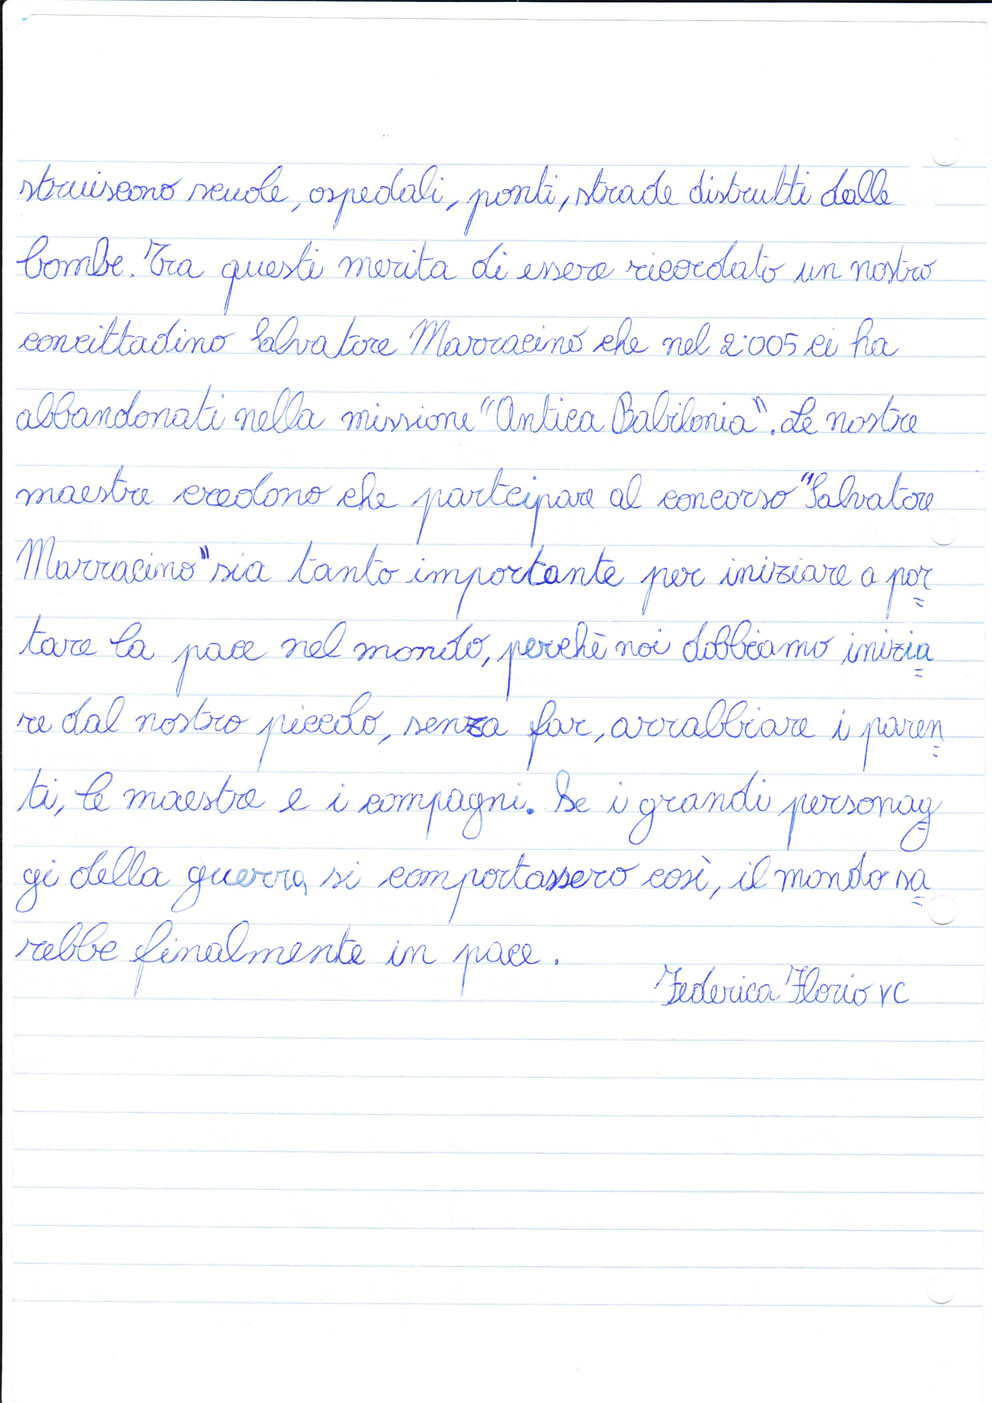 struiscono scuole, ospedali, ponti, strade distrutti dalle
bombe. Tra questi merita di essere ricordato un nostro
concittadino Salvatore Marracino che nel 2.005 ci ha
abbandonati nella missione "Antica Babilonia". Le nostre
maestre credono che partcipare al concorso "Salvatore
Marracino" sia tanto importante per iniziare a por=
tare la pace nel mondo, perchè noi dobbiamo inizia=
re dal nostro piccolo, senza far, arrabbiare i paren=
ti, le maestre e i compagni. Se i grandi personag=
gi della guerra, si comportassero così, il mondo sa=
rebbe finalmente in pace.
Federica Florio VC